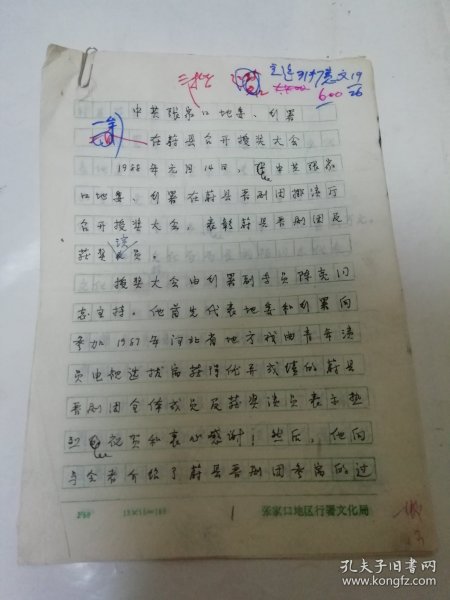 中共张家口地委、行署
在蔚县召开授奖大会
1988年元月14日,中共张家
口地委、行署在蔚县晋剧团排演厅
召开授奖大会。表彰蔚县晋剧团及
获奖演员。
授奖大会由行署副专员陈亮同
志主持。他首先代表地委和行署向
参加1987年河北省地方戏曲青年演
员电视选拔赛获得优异成绩的蔚县
晋剧团全体成员及获奖演员表示热
烈祝贺和衷心感谢!然后,他向
与会者介绍了蔚县晋剧团参赛的过
15×15=195
1
张家口地区行署文化局
600
19
26
孔夫子旧书网
www.kongfz.com